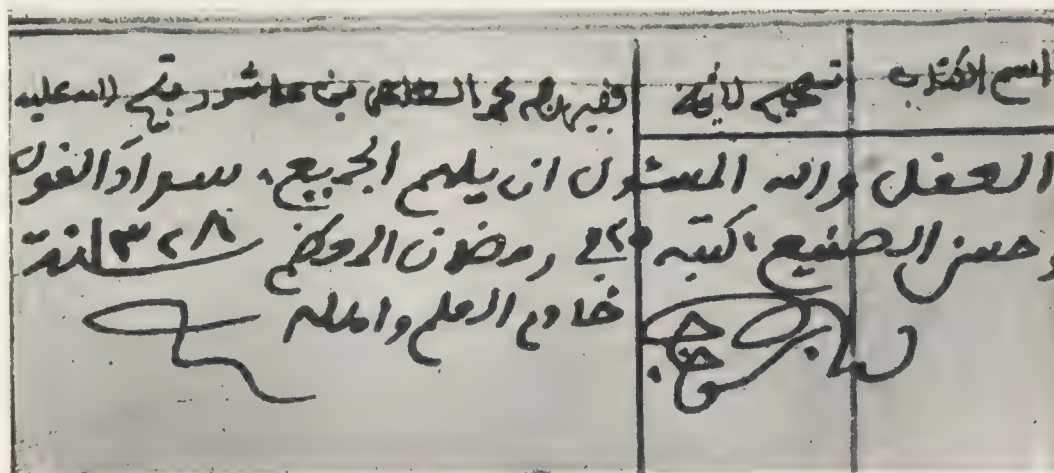 اسم الكتاب تصحيح لائحة فقير ربه محمد الطاهر بن عاشور فتح الله عليه
العقل والله المسئول ان يلهم الجميع، سداد القول
وحسن الصنيع، كتبه في رمضان المعظم ١٣٢٨ سنة
خادم العلم والملة